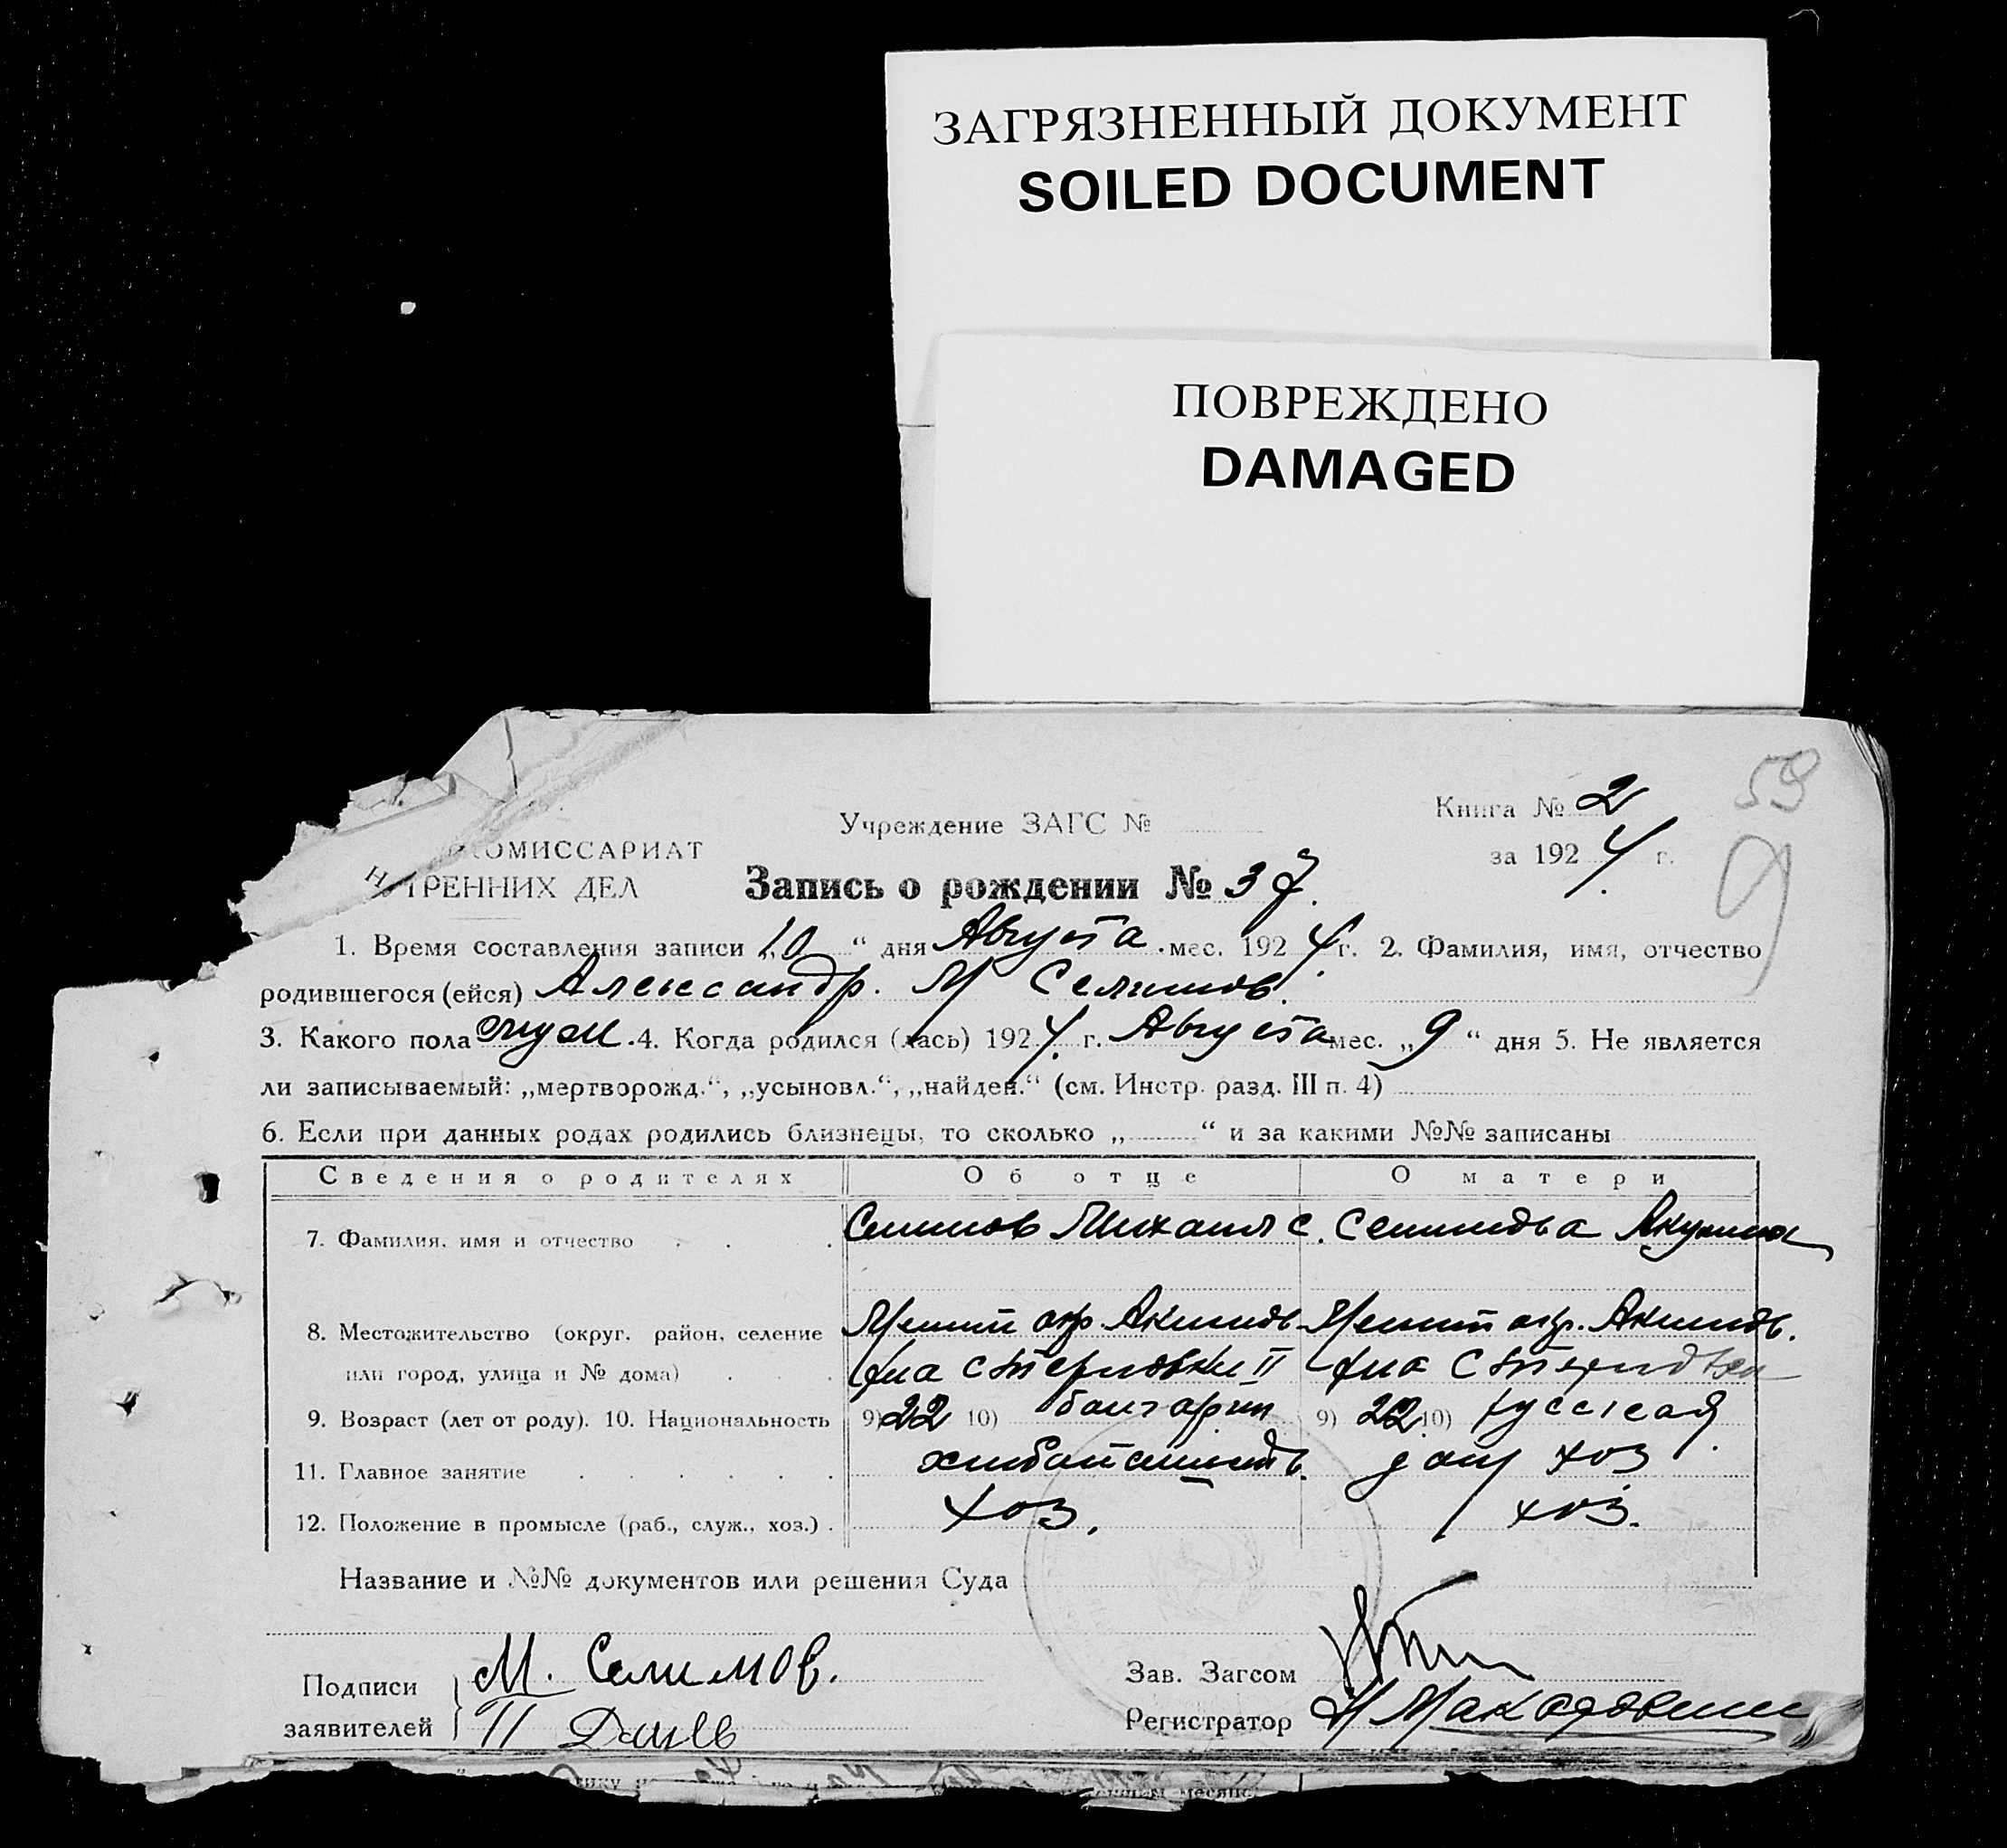 ЗАГРЯЗНЕННЫЙ ДОКУМЕНТ
SOILED DOCUMENT
ПОВРЕЖДЕНО
DAMAGED
59
Книга № 2
Учреждение ЗАГС №
за 1924 г.
КОМИССАРИАТ
ТРЕННИХ ДЕЛ
Запись о рождении № 37.
1. Время составления записи „10“ дня Августа мес. 1924 г. 2. Фамилия, имя, отчество
родившегося (ейся) Александр. М Селимов.
3. Какого пола муж. 4. Когда родился (лась) 1924 г. Августа мес. „9“ дня 5. Не является
ли записываемый: „мертворожд.“, „усыновл.“, „найден.“ (см. Инстр. разд. III п. 4)
6. Если при данных родах родились близнецы, то сколько „ “ и за какими №№ записаны
Сведения о родителях Об отце О матери
7. Фамилия, имя и отчество Селимов Михаил С. Селимова Акулина
8. Местожительство (округ. район, селение Мелит окр. Акимов. Мелит окр. Акимов.
или город, улица и № дома)
9. Возраст (лет от роду). 10. Национальность 9) 22 10) болгарин 9) 22 10) русская
11. Главное занятие хлебопашць. дом хоз
12. Положение в промысле (раб., служ., хоз.) хоз. хоз.
Название и №№ документов или решения Суда
Подписи заявителей М. Селимов.
Зав. Загсом
Регистратор